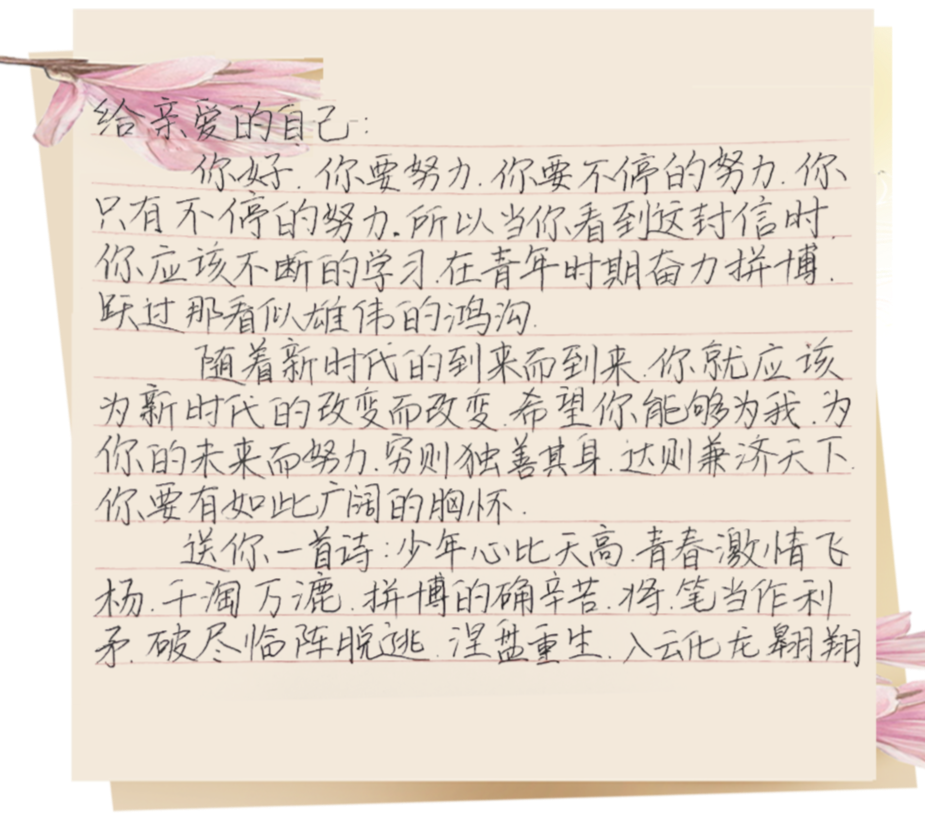 给亲爱的自己:
你好.你要努力.你要不停的努力.你
只有不停的努力.所以当你看到这封信时.
你应该不断的学习.在青年时期奋力拼博.
跃过那看似雄伟的鸿沟.
随着新时代的到来而到来.你就应该
为新时代的改变而改变.希望你能够为我.为
你的未来而努力.穷则独善其身.达则兼济天下.
你要有如此广阔的胸怀.
送你一首诗:少年心比天高.青春激情飞
杨.千淘万漉.拼博的确辛苦.将.笔当作利
矛.破尽临阵脱逃.涅盘重生.入云化龙翱翔